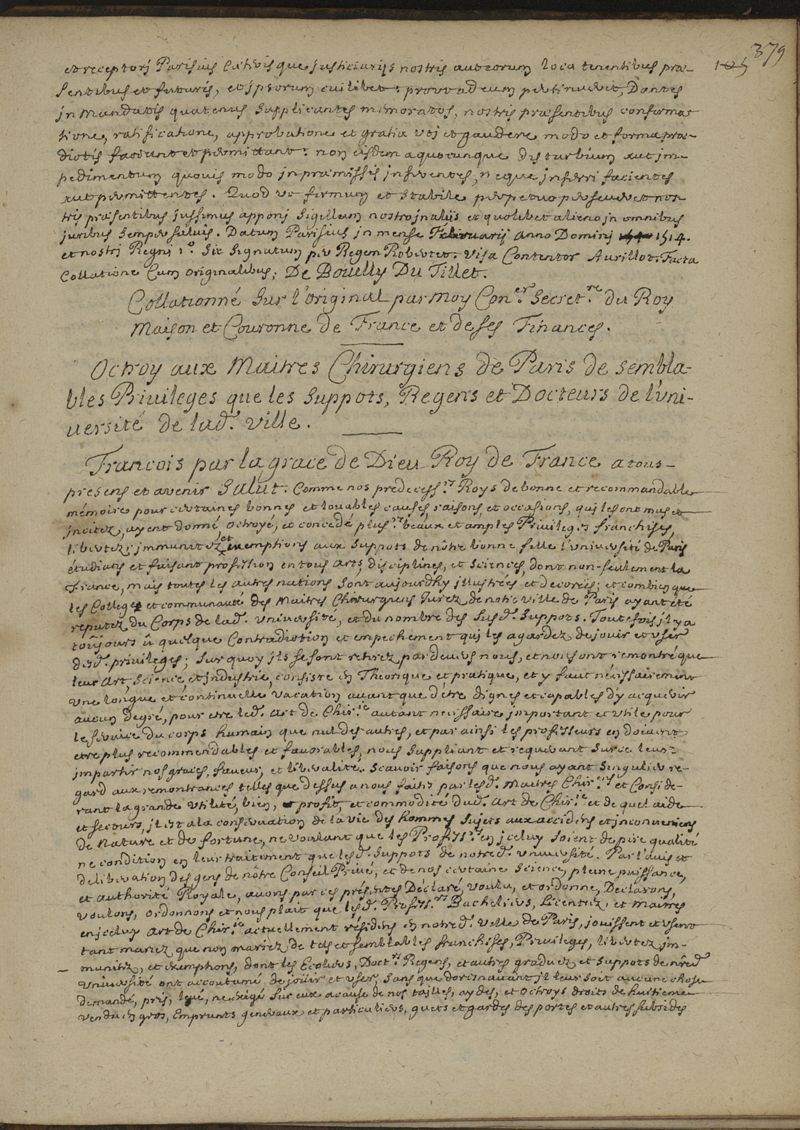 379
et receptorj Parisius Cæterisque justiciarijs nostris aut eorum loca tenentibus præ-
sentibus et futuris, et jpsorum cuilibet prout ad eum pertinuerit Dantes
jn mandatis quatenus Supplicantes memoratos, nostris præsentibus confirma-
tione, ratificatione, approbatione et gratia vtj et gaudere modo et forma præ-
dictis faciant et permittant: non eisdem a quocunque disturbium aut jm-
pedimentum quouis modo jn præmissis jnferentes, neque jnferri facientes
aut permittentes. Quod vt firmum et stabile perpetuo perseueret nos-
tris præsentibus jussimus apponj Sigillum nostro jn alijs et quolibet alieno jn omnibus
juribus Semper saluis. Datum Parisius jn mense Februarij Anno Dominj 1514.
et nostri Regnj 1.º Sic Signatum per Regem Robertet. Visa Contentor Aurillot. Facta
Collatione Cum Originalibus, De Bouilly Du Tillet.
Collationné Sur l'original par moy Con.er Secret.re du Roy
Maison et Couronne de France et de ses Finances.
Octroy aux Maitres Chirurgiens de Paris de sembla-
bles Priuileges que les Suppots, Regens et Docteurs de l'uni-
uersité de lad.e Ville.
Francois par la grace de Dieu Roy de France a tous
presens et avenir Salut. Comme nos predecess.rs Roys de bonne et recommandable
mémoire pour certaines bonnes et louables causes raisons et occasions, quj les ont mus et
jncitez, ayent donné Octroyé, et concedé plus.rs beaux et amples Priuileges franchises,
libertez, jmmunitez et exemptions aux Suppots de nôtre bonne fille l'Université de Paris
étudians et faisant profession en tous arts, disciplines, et Sciences, dont non-seulement la
France, mais toutes les autres nations Sont aujourdhy jllustrées et decorées; et combien que
les College et communauté des Maitres Chirurgiens Jurez de notre Ville de Paris ayant été
reputez du Corps de lad.e Vniuersité, et du nombre des susd.s Suppots. Toutefois jl y a
toûjours û quelque Contradiction et empechement quj les a gardez de jouir et vser
desd.s priuileges; Sur quoy jls se sont retirez par deuers nous, et nous ont remontré que
leur Art Science et jndustrie consiste en Theorique et pratique, et y faut necessairement
vne longue et continuelle vacation auant que d'etre dignes et capables d'y acquerir
aucun degré, pour etre led.t Art de Chir.ie autant necessaire jmportant et vtile pour
le seruice du corps humain que nul des autres, et par ainsi les professeurs en doiuent
etre plus recommendables et fauorables, nous Suppliant et requerant Sur ce leur
jmpartir nos graces, faueur, et liberalité. Scauoir faisons que nous ayant Singulier re-
gard aux remontrances telles que dessus a nous faites par lesd.s Maitres Chir.ns et Conside-
rant la grande Vtilité, bien, profit, et commodité dud.t Art de Chir.ie et de quel aide
et secours, jl est a la conseruation de la vie des hommes Sujets aux accidens et jnconueniens
de Nature et de fortune, ne voulant que les Profess.rs en jceluy Soient de pire qualité
ne condition en leur traitement que lesd.s Suppots de notred.e Vniuersité. Par l'auis et
deliberation des gens de nôtre Conseil Priué, et de nos certaine Science, pleine puissance,
et authorité Royale, auons par ces présentes Declaré, voulu, et ordonné, Declarons,
voulons, Ordonnons et nous plait que lesd.s Profess.rs Bacheliers, Licentiez, et Maitres
en jceluy Art de Chir.ie actuellement résidens en notred.e Ville de Paris, jouissent et vsent
tant mariez que non mariez de tels et semblables franchises, Priuileges, libertez jm-
munitez, et exemptions, dont les Ecoliers, Doct.rs Regens, et autres graduez et Suppots de notred.e
Vniuersité ont accoutumé de joüir et vser, Sans que dorenauant jl leur soit aucune chose
demandé, pris, leué, ne exigé sur eux a cause de nos tailles, aydes, et Octroys droits de huitieme
vendu en gros, Emprunts generaux et particuliers, guets et gardes des portes et autres subsides